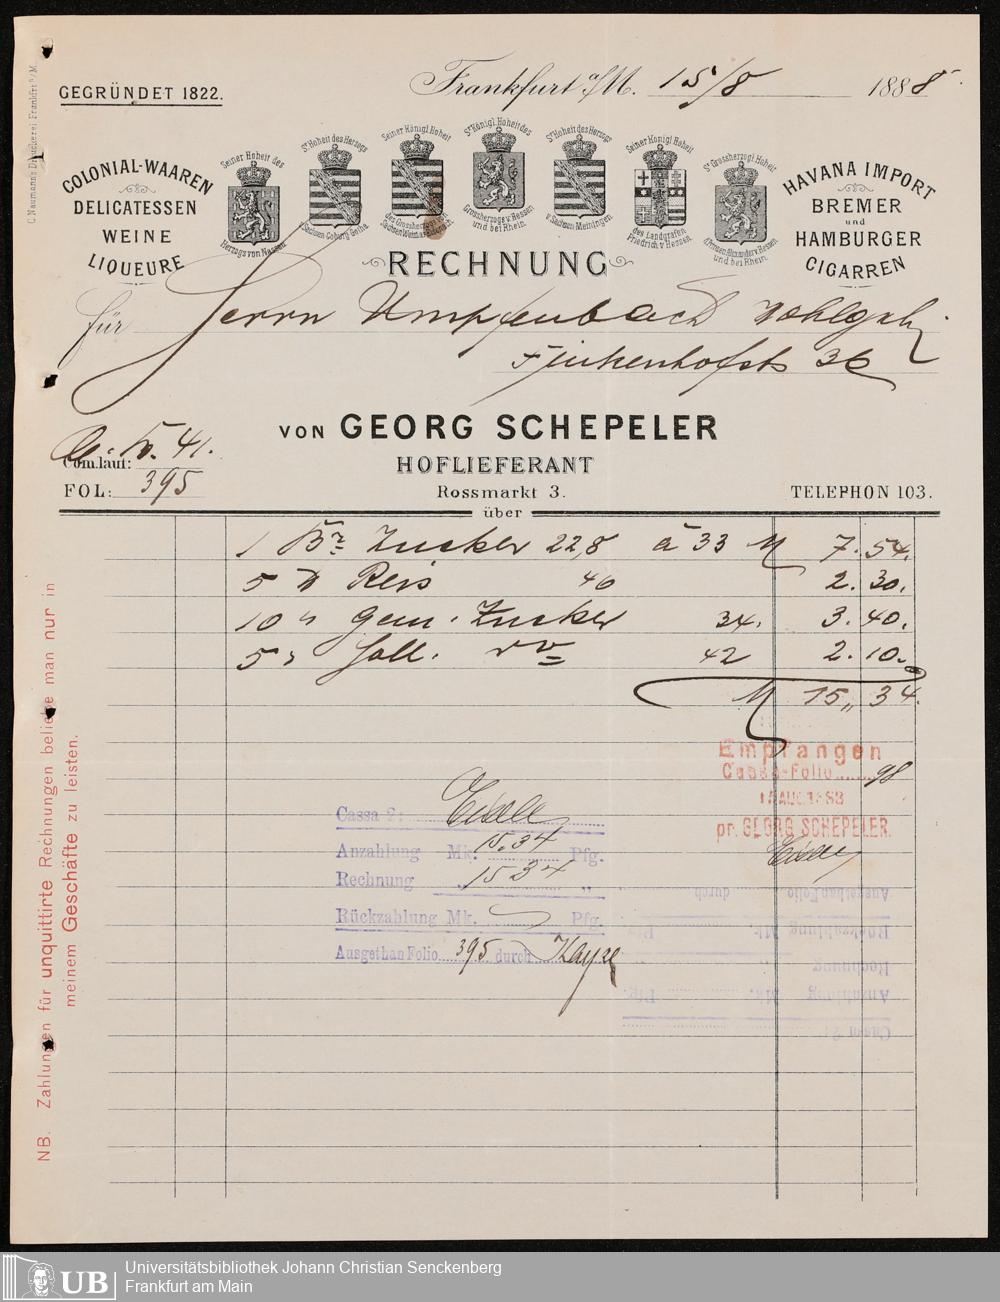 C. Naumann's Druckerei Frankfurt a/M.
GEGRÜNDET 1822.
Frankfurt a/M. 15/8 1888.
COLONIAL-WAAREN
DELICATESSEN
WEINE
LIQUEURE
Seiner Hoheit des
Herzogs von Nassau
Sr Hoheit des Herzogs
v. Sachsen-Coburg Gotha
Seiner Königl. Hoheit
des Grossherzogs v.
Sr Königl. Hoheit des
Grossherzogs v. Hessen
und bei Rhein.
Sr Hoheit des Herzogs
v. Sachsen Meiningen
Seiner Königl. Hoheit
des Landgrafen
Friedrich v. Hessen
Sr Grossherzogl. Hoheit
d. Prinzen Alexander v. Hessen
und bei Rhein.
HAVANA IMPORT
BREMER
und
HAMBURGER
CIGARREN
RECHNUNG
Für Herrn Umpfenbach Wohlgeb.
Finkenhofstr 36
VON GEORG SCHEPELER
HOFLIEFERANT
Com. laut: 41.
FOL: 395
Rossmarkt 3.
TELEPHON 103.
über
1 Br Zucker 22,8 à 33 M 7.54.
5 ℔ Reis 46 2.30.
10 " gem. Zucker 34. 3.40.
5 " 42 2.10.
M 15,, 34.
Empfangen
Cassa-Folio 98
15 AUG. 1888
pr. GEORG SCHEPELER.
Cassa 2:
Anzahlung Mk. 15.34 Pfg.
Rechnung " 15 34 "
Rückzahlung Mk. Pfg.
Ausgethan Folio 395 durch
Ausgethan Folio durch
Rückzahlung Mk. Pfg.
Rechnung
Anzahlung Mk. Pfg.
Cassa 2:
NB. Zahlungen für unquittirte Rechnungen beliebe man nur in
meinem Geschäfte zu leisten.
UB
Universitätsbibliothek Johann Christian Senckenberg
Frankfurt am Main